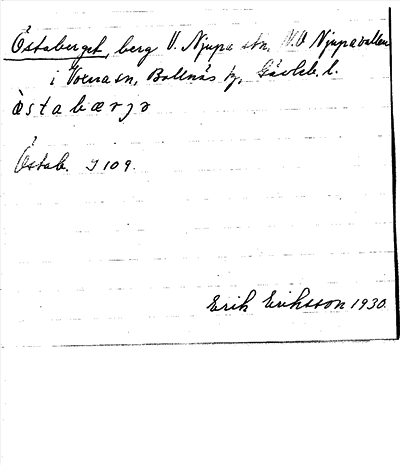 Åstaberget, berg V. Njupa stn. N.O Njupavallen
i Voxna sn, Bollnäs tg, Gävleb. l.
åstabærjə
Åstab. J 109.
Erik Eriksson 1930.